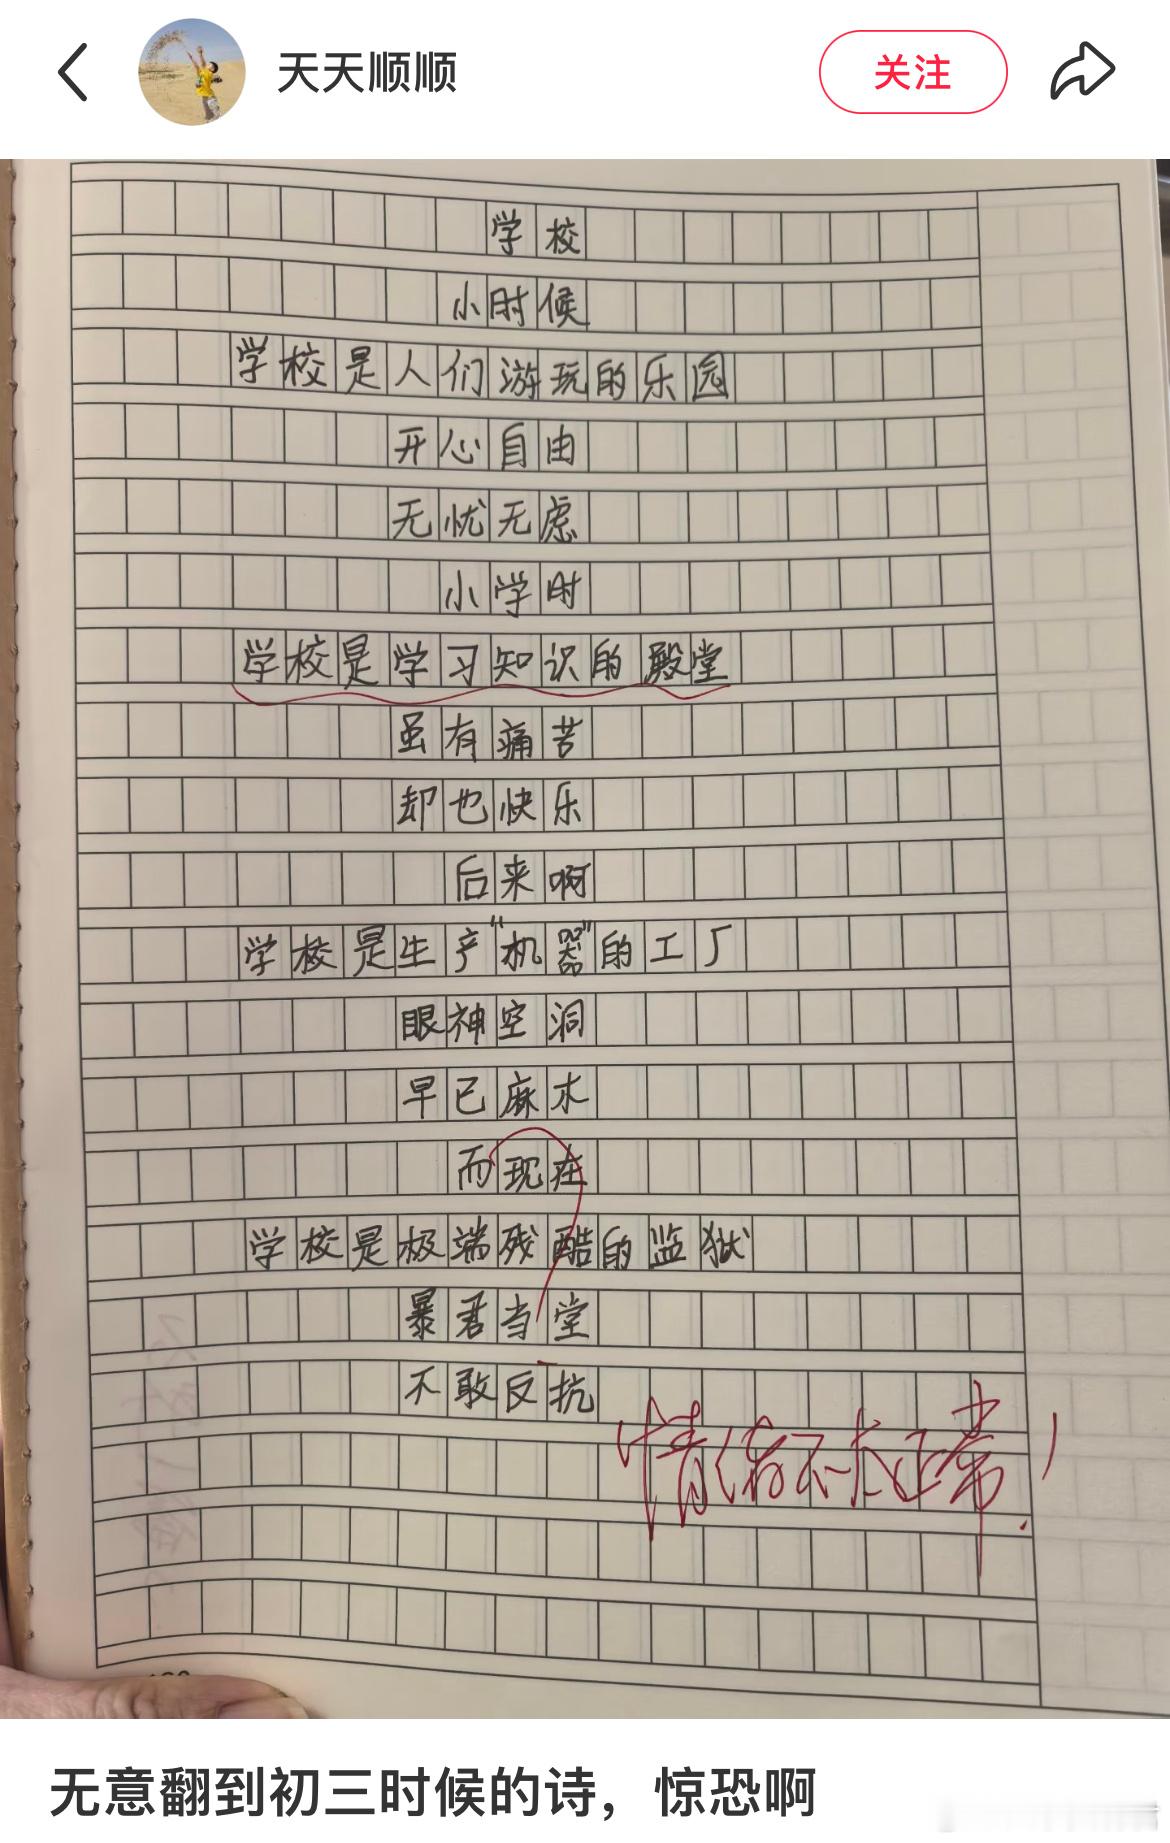 天天顺顺
关注
学校
小时候
学校是人们游玩的乐园
开心自由
无忧无虑
小学时
学校是学习知识的殿堂
虽有痛苦
却也快乐
后来啊
学校是生产"机器"的工厂
眼神空洞
早已麻木
而现在
学校是极端残酷的监狱
暴君当堂
不敢反抗
情绪不大正常!
无意翻到初三时候的诗，惊恐啊